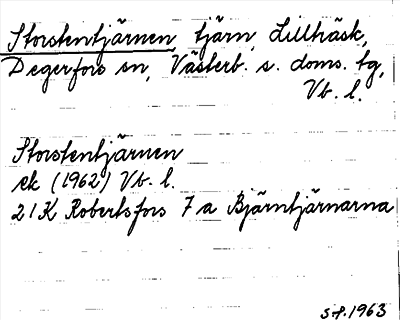 Storstentjärnen, tjärn, Lillträsk,
Degerfors sn, Västerb. s. doms. tg,
Vb. l.
Storstentjärnen
ek (1962) Vb. l.
21K Robertsfors 7 a Bjärntjärnarna
1963